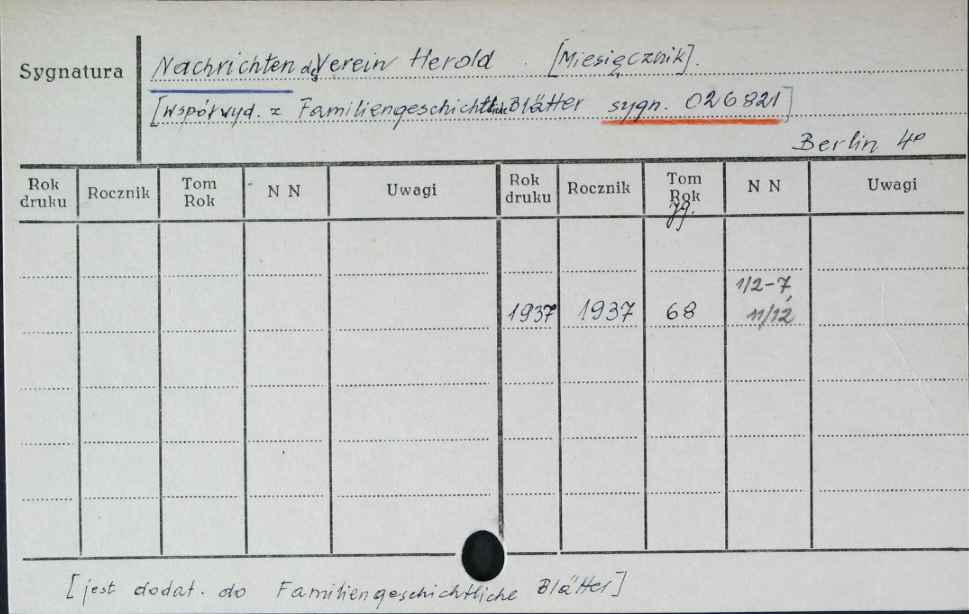 Sygnatura
Nachrichten des Verein Herold . [Miesięcznik].
[Współwyd. z Familiengeschichtliche Blätter sygn. 026821]
Berlin 4°
Rok druku Rocznik Tom Rok N N Uwagi Rok druku Rocznik Tom Rok Jg. N N Uwagi
1/2-7,
1937 1937 68 11/12
[jest dodat. do Familiengeschichtliche Blätter]